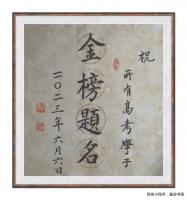 祝
所有高考學子
金榜題名
二〇二三年六月六日